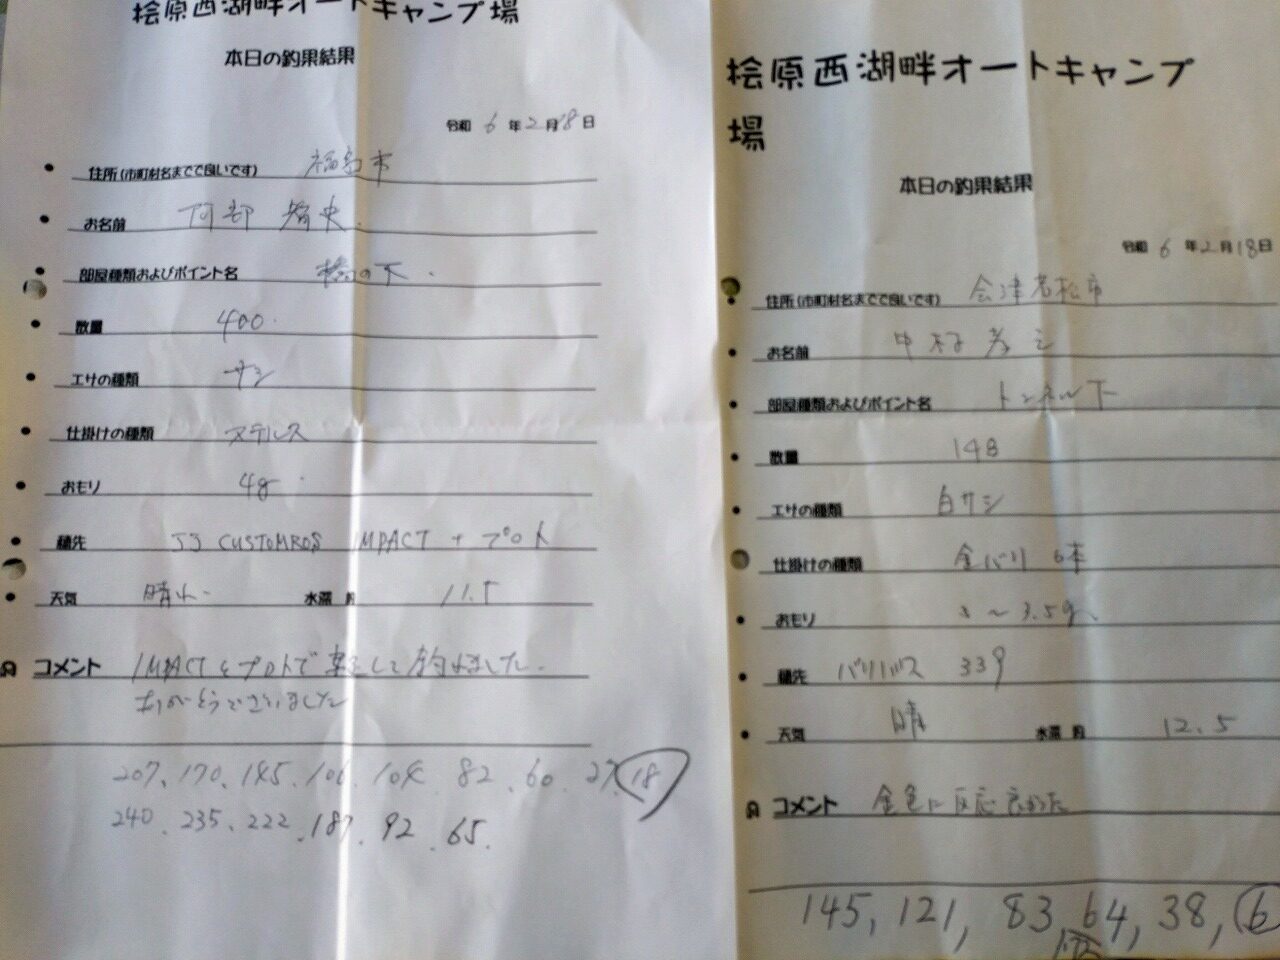 桧原西湖畔オートキャンプ場
本日の釣果結果
令和 6 年 2 月 18 日
住所(市町村名までで良いです) 福島市
お名前 阿部
部屋種類およびポイント名 橋の下.
数量 400.
エサの種類 サシ
仕掛けの種類 ステルス
おもり 4g
穂先 JJ CUSTOMRODS IMPACT + プロト
天気 晴れ. 水深 約 11.5
コメント IMPACTとプロトで楽しく釣れました.
ありがとうございました
207、170、145、106、104 82、60、27、18
240、235、222、187、92、65.
桧原西湖畔オートキャンプ
場
本日の釣果結果
令和 6 年 2 月 18 日
住所(市町村名までで良いです) 会津若松市
お名前 中村
部屋種類およびポイント名 トンネル下
数量 148
エサの種類 白サシ
仕掛けの種類 金バリ 6本
おもり 3～3.5g
穂先 バリバス 339
天気 晴 水深 約 12.5
コメント 金色に反応良かった
145, 121, 83, 64, 38, 6